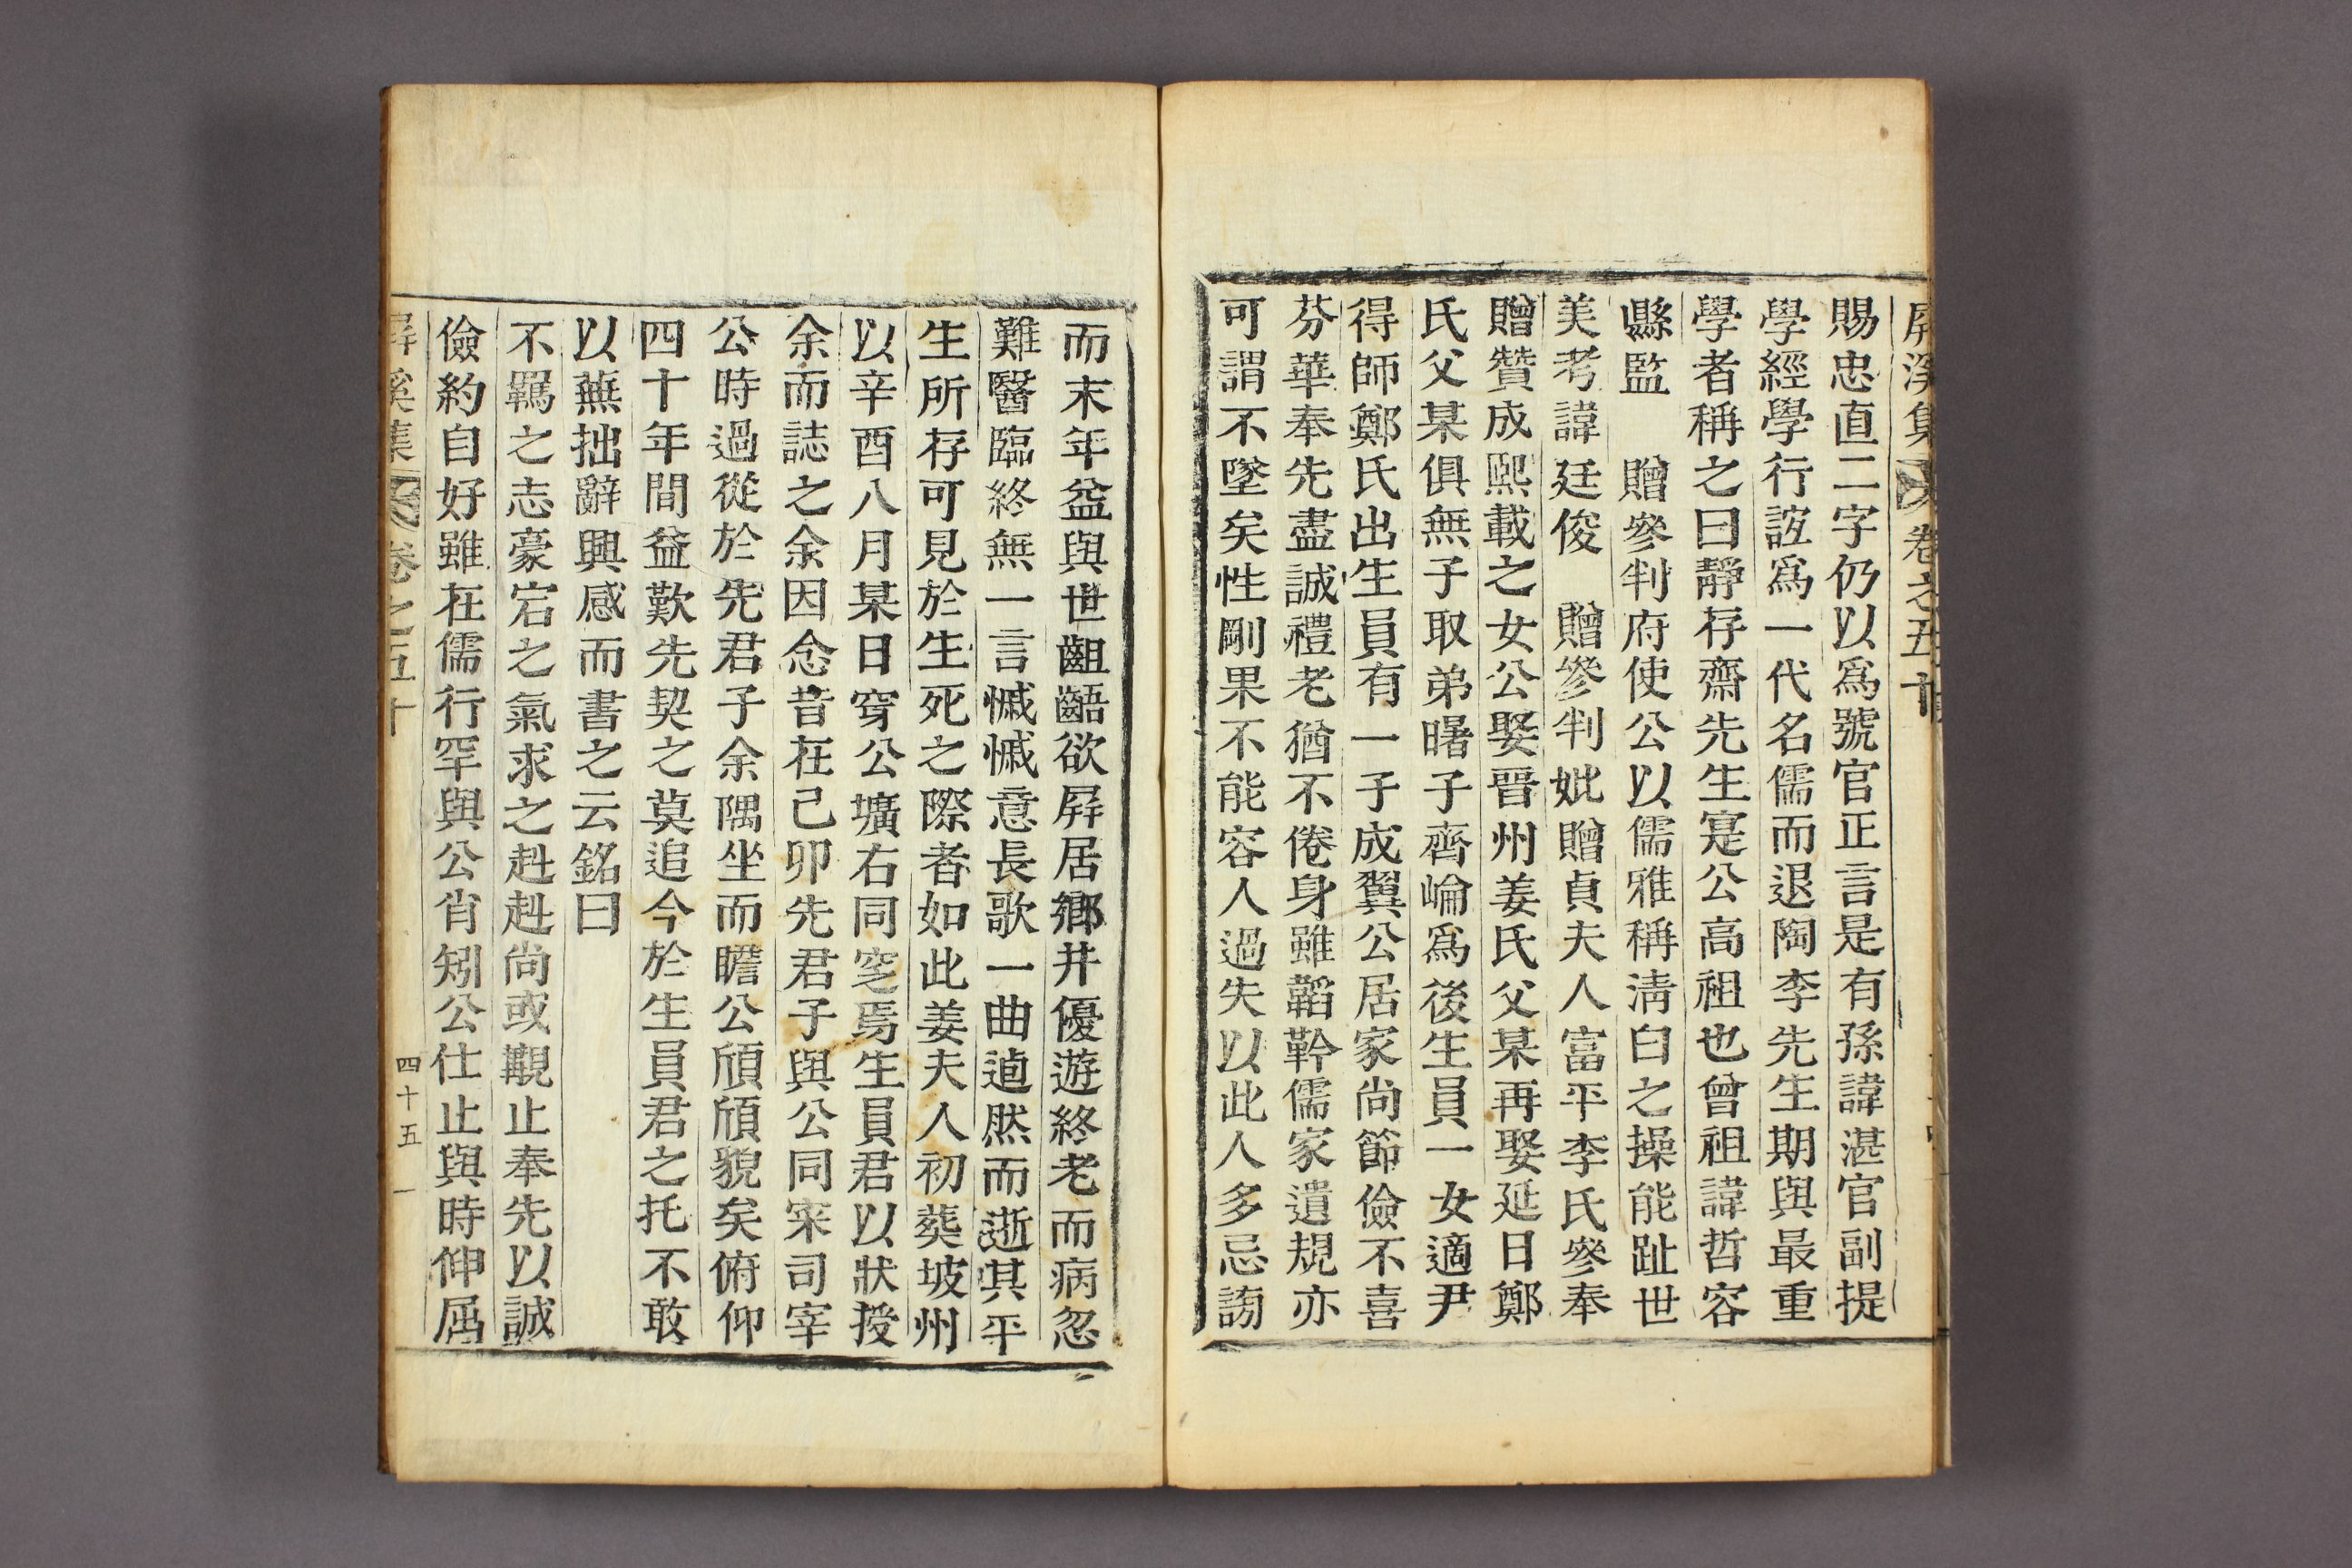 屏溪集 卷之五十
賜忠直二字仍以爲號官正言是有孫諱湛官副提
學經學行誼爲一代名儒而退陶李先生期與最重
學者稱之曰靜存齋先生寔公高祖也曾祖諱哲容
縣監 贈參判府使公以儒雅稱淸白之操能趾世
美考諱廷俊 贈參判妣贈貞夫人富平李氏參奉
贈贊成熙載之女公娶晉州姜氏父某再娶延日鄭
氏父某俱無子取弟曙子齊崘爲後生員一女適尹
得師鄭氏出生員有一子成翼公居家尚節儉不喜
芬華奉先盡誠禮老猶不倦身雖韜鈐儒家遺規亦
可謂不墜矣性剛果不能容人過失以此人多忌謗
而末年益與世齟齬欲屛居鄕井優遊終老而病忽
難醫臨終無一言慽慽意長歌一曲逌然而逝其平
生所存可見於生死之際者如此姜夫人初葬坡州
以辛酉八月某日穿公壙右同窆焉生員君以狀授
余而誌之余因念昔在己卯先君子與公同寀司宰
公時過從於先君子余隅坐而瞻公頎頎貌矣俯仰
四十年間益歎先契之莫追今於生員君之托不敢
以蕪拙辭興感而書之云銘曰
不羈之志豪宕之氣求之赳赳尚或覯止奉先以誠
儉約自好雖在儒行罕與公肖矧公仕止與時伸屈
屏溪集 卷之五十 四十五